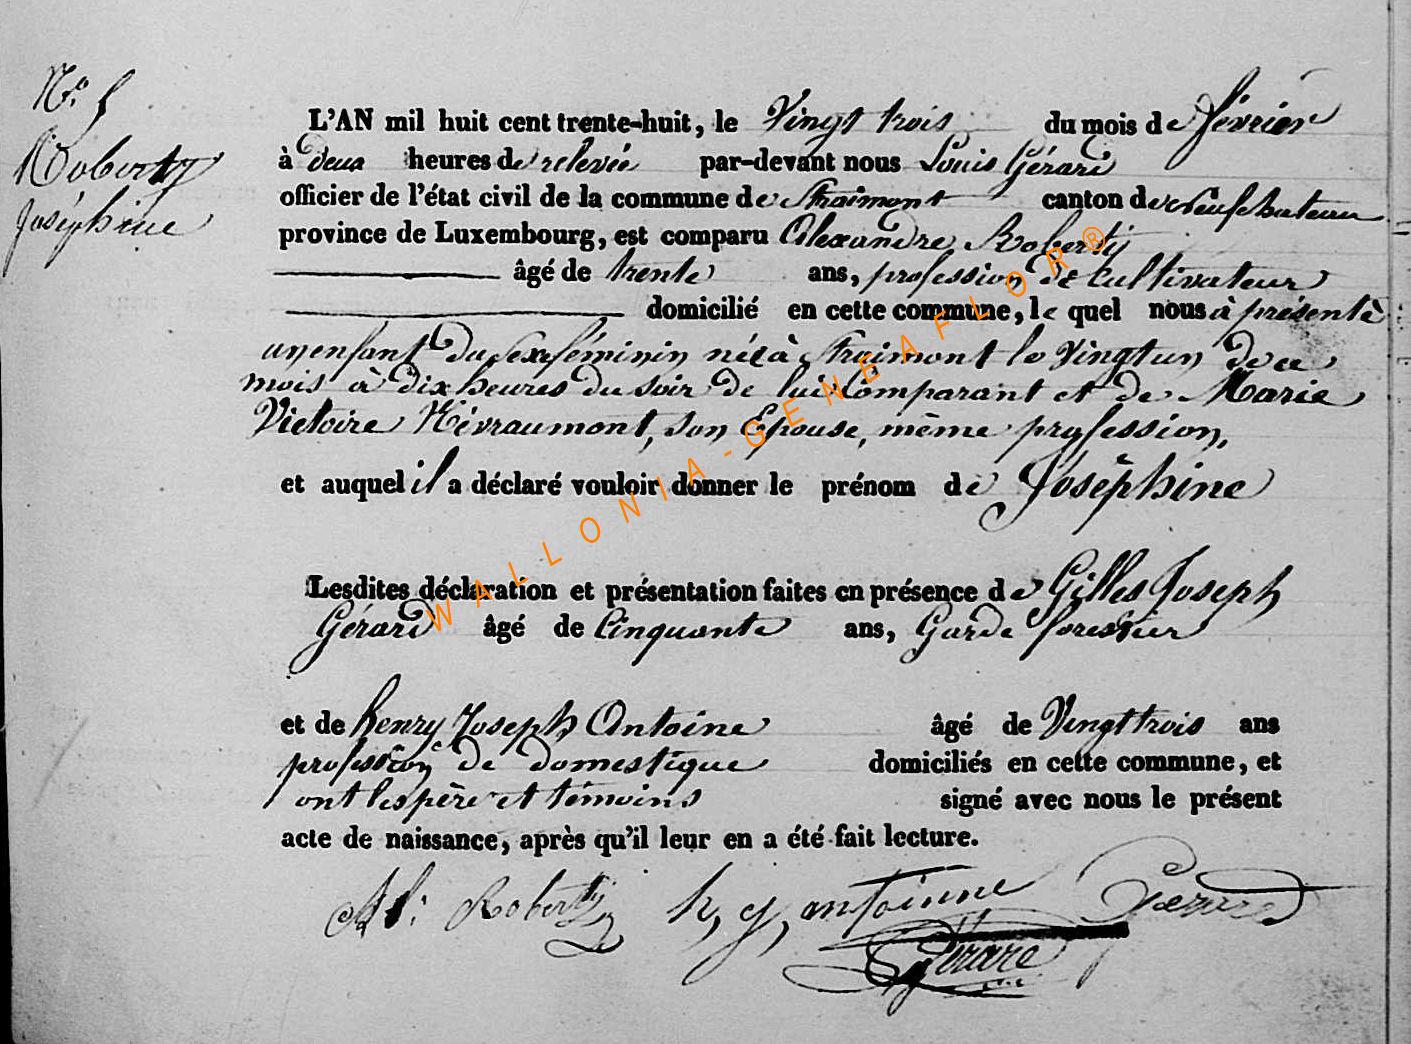 N.° 5
Roberty
Joséphine
L'AN mil huit cent trente-huit, le Vingt trois du mois de février
à deux heures de relevée par-devant nous Louis Gérard
officier de l'état civil de la commune de Straimont canton de Neufchateau
province de Luxembourg, est comparu Alexandre Roberty
âgé de trente ans, profession de Cultivateur
domicilié en cette commune, le quel nous à présenté
un enfant du sexe féminin née à Straimont le vingt un de ce
mois à dix heures du soir de lui Comparant et de Marie
Victoire Hévraumont, son Epouse, même profession,
et auquel il a déclaré vouloir donner le prénom de Joséphine
Lesdites déclaration et présentation faites en présence de Gilles Joseph
Gérard âgé de Cinquante ans, Garde forestier
et de henry Joseph Antoine âgé de Vingt trois ans
profession de domestique domiciliés en cette commune, et
ont les père et témoins signé avec nous le présent
acte de naissance, après qu'il leur en a été fait lecture.
Al: Roberty h, j, antoinne Gérard
Gérard
WALLONIA-GENEAFLOR®